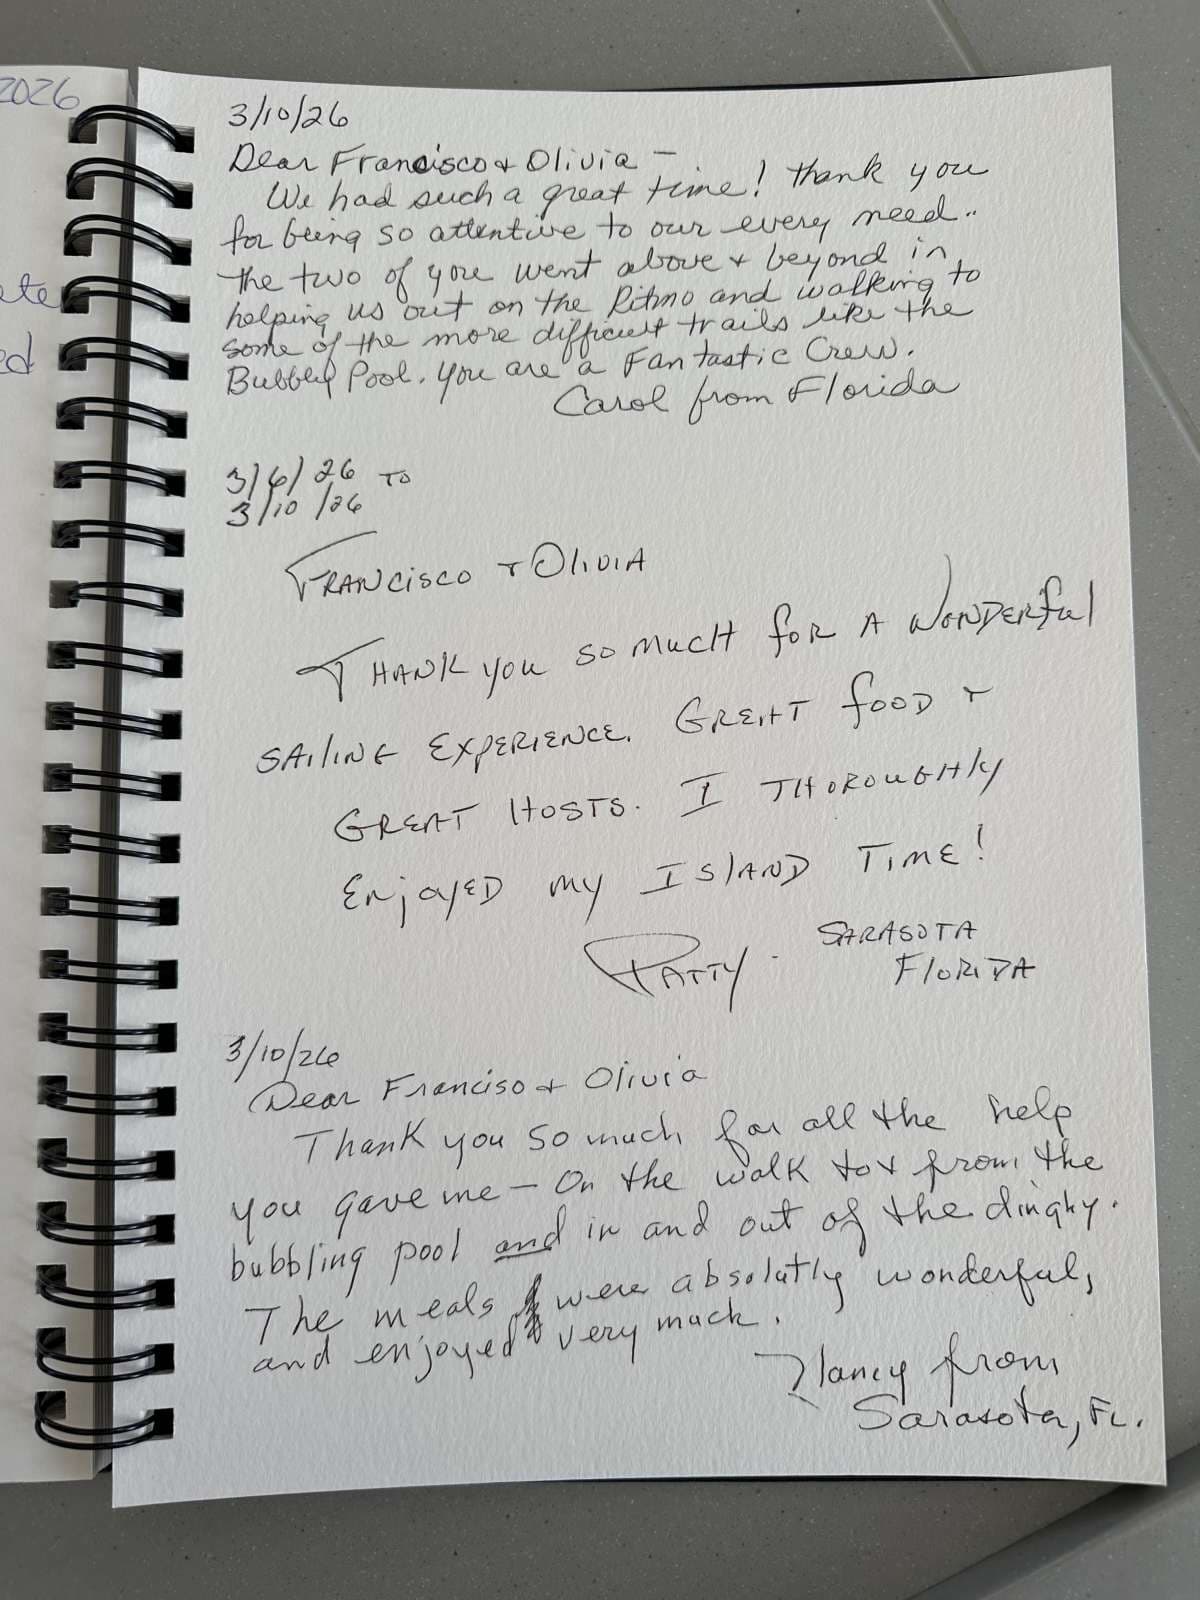 2026
ed
3/10/26
Dear Francisco + Olivia –
We had such a great time! Thank you
for being so attentive to our every need..
the two of you went above + beyond in
helping us out on the Ritmo and walking to
some of the more difficult trails like the
Bubbly Pool. You are a Fantastic Crew.
Carol from Florida
3/6/26 TO
3/10/26
FRANCISCO + OLIVIA
THANK you so much for A WONDERful
SAILING EXPERIENCE. GREAT food +
GREAT HOSTS. I THOROUGHLY
ENJOYED my ISLAND TIME!
PATTY - SARASOTA
FLORIDA
3/10/26
Dear Franciso + Olivia
Thank you so much for all the help
you gave me – On the walk to + from the
bubbling pool and in and out of the dinghy.
The meals were absolutly wonderful,
and enjoyed very much.
Nancy from
Sarasota, FL.